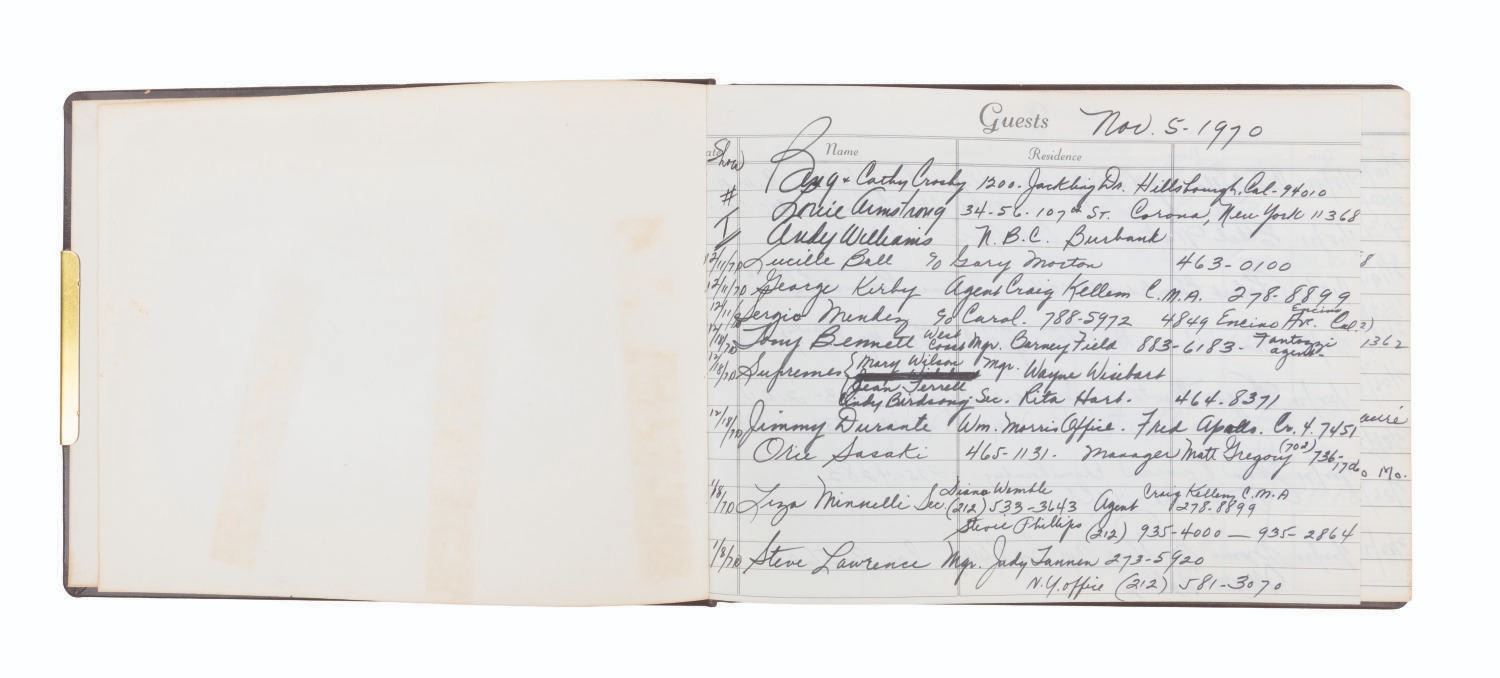 Guests Nov. 5-1970
Show Name Residence
Bing + Cathy Crosby 1200. Jackling Dr. Hillsborough, Cal-94010
# Louie Armstrong 34-56-107th St. Corona, New York 11368
I Andy Williams N.B.C. Burbank
12/11/70 Lucille Ball c/o Gary Morton 463-0100
12/11/70 George Kirby Agent Craig Kellem C.M.A. 278-8899
12/11/70 Sergio Mendez c/o Carol. 788-5972 4849 Encino Av. Encino Cal.
12/18/70 Tony Bennett West Coast Mgr. Barney Field 883-6183- Fantozzi agent- 1362
12/18/70 Supremes { Mary Wilson Mgr. Wayne Wisebart
Jean Terrell
Cindy Birdsong Sec. Rita Hart. 464-8371
12/18/70 Jimmy Durante Wm. Morris Office. Fred Apollo. Cr. 4. 7451
Orie Sasaki 465-1131. Manager Matt Gregory (702) 736-
Mo.
1/8/70 Liza Minnelli Sec. Diana Wemble (212) 533-3643 Agent Craig Kellem C.M.A 278-8899
Stevie Phillips (212) 935-4000 — 935-2864
1/8/70 Steve Lawrence Mgr. Judy Tannen 273-5920
N.Y. office (212) 581-3070